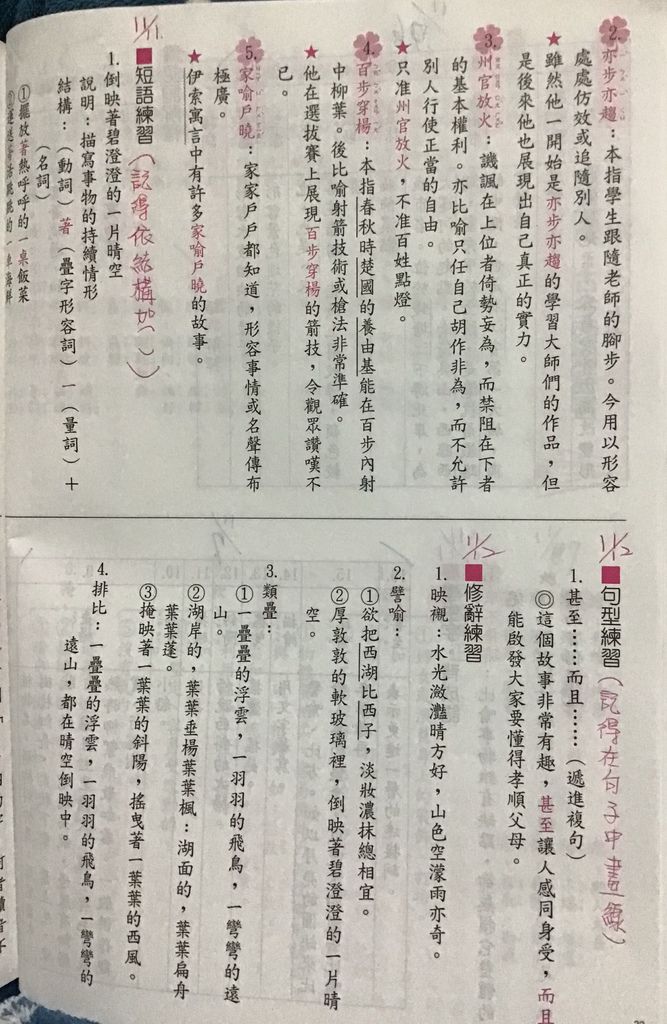 2. 亦步亦趨：本指學生跟隨老師的腳步。今用以形容
處處仿效或追隨別人。
★雖然他一開始是亦步亦趨的學習大師們的作品，但
是後來他也展現出自己真正的實力。
3. 州官放火：譏諷在上位者倚勢妄為，而禁阻在下者
的基本權利。亦比喻只任自己胡作非為，而不允許
別人行使正當的自由。
★只准州官放火，不准百姓點燈。
4. 百步穿楊：本指春秋時楚國的養由基能在百步內射
中柳葉。後比喻射箭技術或槍法非常準確。
★他在選拔賽上展現百步穿楊的箭技，令觀眾讚嘆不
已。
5. 家喻戶曉：家家戶戶都知道，形容事情或名聲傳布
極廣。
★伊索寓言中有許多家喻戶曉的故事。
11/1
■短語練習（記得依結構加（ ））
1. 倒映著碧澄澄的一片晴空
說明：描寫事物的持續情形
結構：（動詞）著（疊字形容詞）一（量詞）＋
（名詞）
①擺放著熱呼呼的一桌飯菜
11/2
■句型練習（記得在句子中畫線）
1. 甚至……而且……（遞進複句）
◎這個故事非常有趣，甚至讓人感同身受，而且
能啟發大家要懂得孝順父母。
11/2
■修辭練習
1. 映襯：水光瀲灩晴方好，山色空濛雨亦奇。
2. 譬喻：
①欲把西湖比西子，淡妝濃抹總相宜。
②厚敦敦的軟玻璃裡，倒映著碧澄澄的一片晴
空。
3. 類疊：
①一疊疊的浮雲，一羽羽的飛鳥，一彎彎的遠
山。
②湖岸的，葉葉垂楊葉葉楓：湖面的，葉葉扁舟
葉葉蓬。
③掩映著一葉葉的斜陽，搖曳著一葉葉的西風。
4. 排比：一疊疊的浮雲，一羽羽的飛鳥，一彎彎的
遠山，都在晴空倒映中。